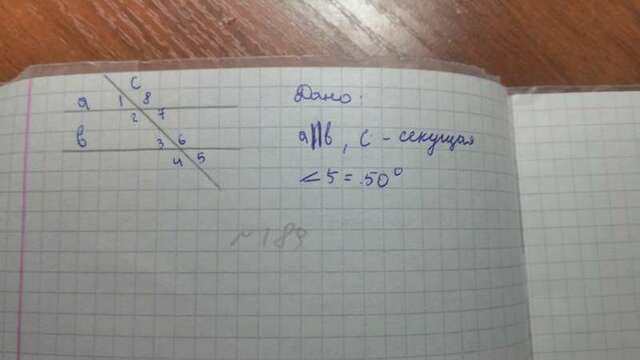 c
a 1 8
2 7
в 3 6
4 5
Дано:
a||в, c - секущая
∠5 = 50°
~189